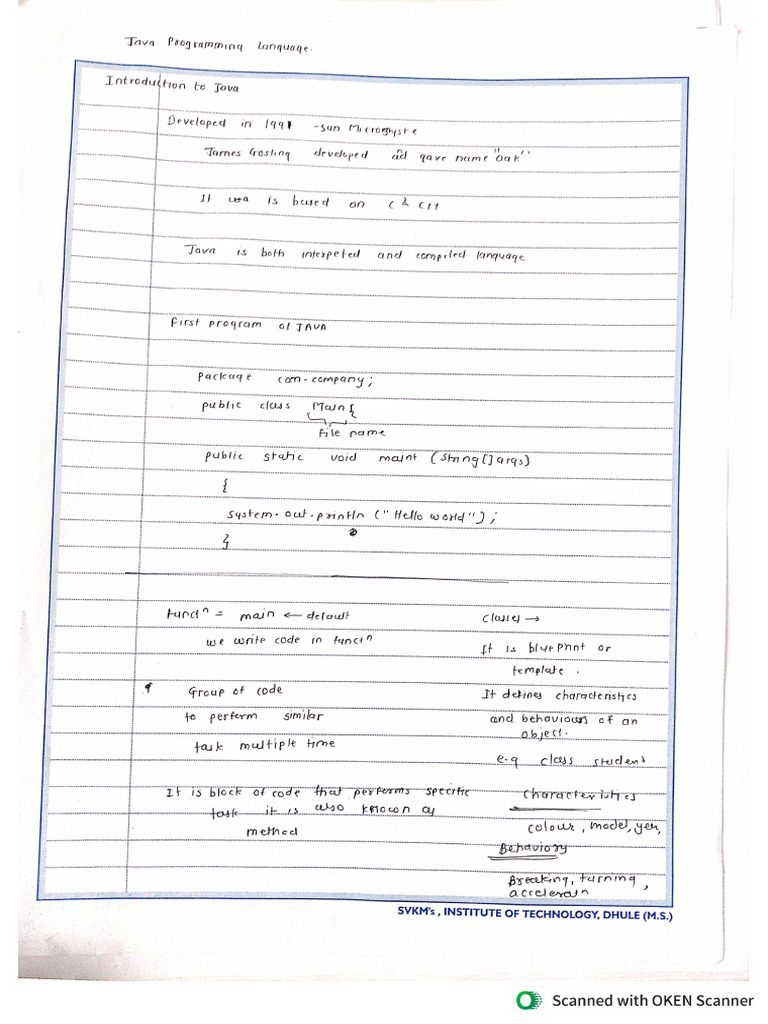 Java Programming Language.
Introduction to Java
Developed in 1991 - Sun Micromyste
James Gosling developed ad gave name "oak"
It usa is based on C & C++
Java is both interpeted and compiled language
First program of JAVA
Package com.company;
public class Main{
File name
public static void maint (String[] args)
{
System.out.println ("Hello world");
}
Functn = main ← default
we write code in functn
Group of code
to perform similar
task multiple time
It is block of code that performs specific
task it is also known as
method
Classes →
It is blueprint or
template.
It defines characteristics
and behaviours of an
object.
e.g class student
Characteristics
colour, model, yer,
Behaviory
Breaking, turning,
acceleratn
SVKM's, INSTITUTE OF TECHNOLOGY, DHULE (M.S.)
Scanned with OKEN Scanner